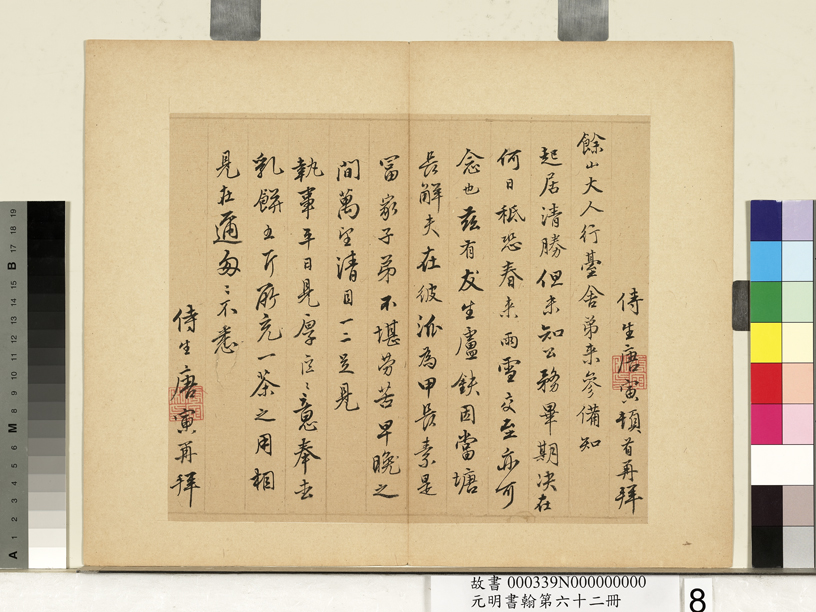 侍生唐寅頓首再拜
餘山大人行臺舍弟來參備知
起居清勝但未知公務畢期決在
何日秪恐春來雨雪交至亦可
念也茲有友生盧鈇因當塘
長解夫在彼派為甲長素是
冨家子弟不堪勞苦早晚之
間萬望清目一二足見
執事平日見厚區〻意奉去
乳餅五斤所充一茶之用相
見在邇匆〻不悉
侍生唐寅再拜
故書 000339N000000000
元明書翰第六十二冊
8
A 1 2 3 4 5 6 M 8 9 10 11 12 13 14 15 B 17 18 19